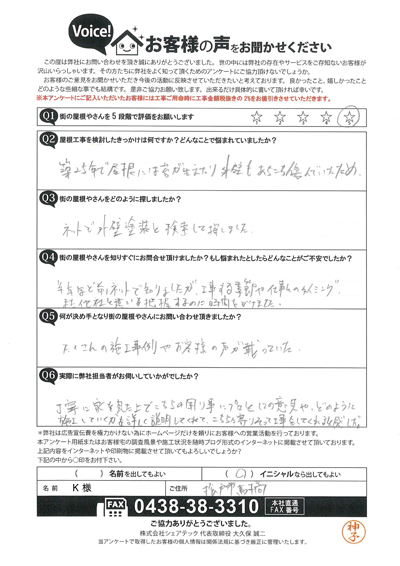 Voice!
お客様の声をお聞かせください
この度は弊社にお問い合わせを頂き誠にありがとうございました。世の中には弊社の存在やサービスをご存知ないお客様が
沢山いらっしゃいます。その方たちに弊社をよく知って頂くためのアンケートにご協力頂けないでしょうか。
お客様のご意見をお聞かせいただき今後の活動に反映させていただきたいと考えております。良かったこと、嬉しかったこと
どのような些細な事でも結構です。是非ご協力お願い致します。出来るだけ具体的に書いて頂ければ幸いです。
※本アンケートにご記入いただいたお客様には工事ご用命時に工事金額税抜きの 2%をお値引きさせていただきます。
Q1 街の屋根やさんを 5 段階で評価をお願いします ☆ ☆ ☆ ☆ ☆
Q2 屋根工事を検討したきっかけは何ですか?どんなことで悩まれていましたか?
築25年で屋根には苔が生えたり外壁もあちこち傷んでいたため
Q3 街の屋根やさんをどのように探しましたか?
ネットで外壁塗装と検索して探しました。
Q4 街の屋根やさんを知りすぐにお問合せ頂けましたか?もし悩まれたとしたらどんなことがご不安でしたか?
工事する季節や仕事のタイミング、
Q5 何が決め手となり街の屋根やさんにお問い合わせ頂きましたか?
たくさんの施工事例やお客様の声が載っていた。
Q6 実際に弊社担当者がお伺いしていかがでしたか?
丁寧に家を見た上でこちらの困り事にプロとしての意見や、どのように
施工していくかを詳しく説明してくれて、
※弊社は広告宣伝費を極力かけない為にホームページだけを頼りにお客様への営業活動を行っております。
本アンケート用紙またはお客様宅の調査風景や施工状況を随時ブログ形式でインターネットに掲載させて頂いております。
上記内容をインターネットや印刷物に掲載させて頂いてもよろしいでしょうか?
下記の中から〇印をお付下さい。
( ) 名前を出してもよい (〇) イニシャルなら出してもよい
名前 K 様 ご住所
FAX 0438-38-3310 本社直通 FAX 番号
ご協力ありがとうございました。
株式会社シェアテック 代表取締役 大久保 誠二
当アンケートで取得したお客様の個人情報は関係法規に基づき厳正に管理いたします。
神子